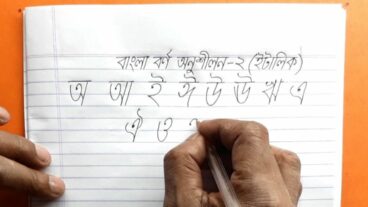 বাংলা বর্ণ অনুশীলন-২ (ইটালিক)
অ আ ই ঈ উ ঊ ঋ এ
ঐ ও